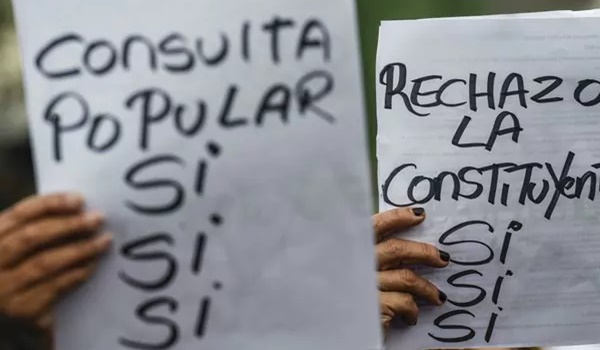 CONSULTA
POPULAR
Sí
Sí
Sí
RECHAZO
LA
CONSTITUYENT
Sí
Sí
Sí